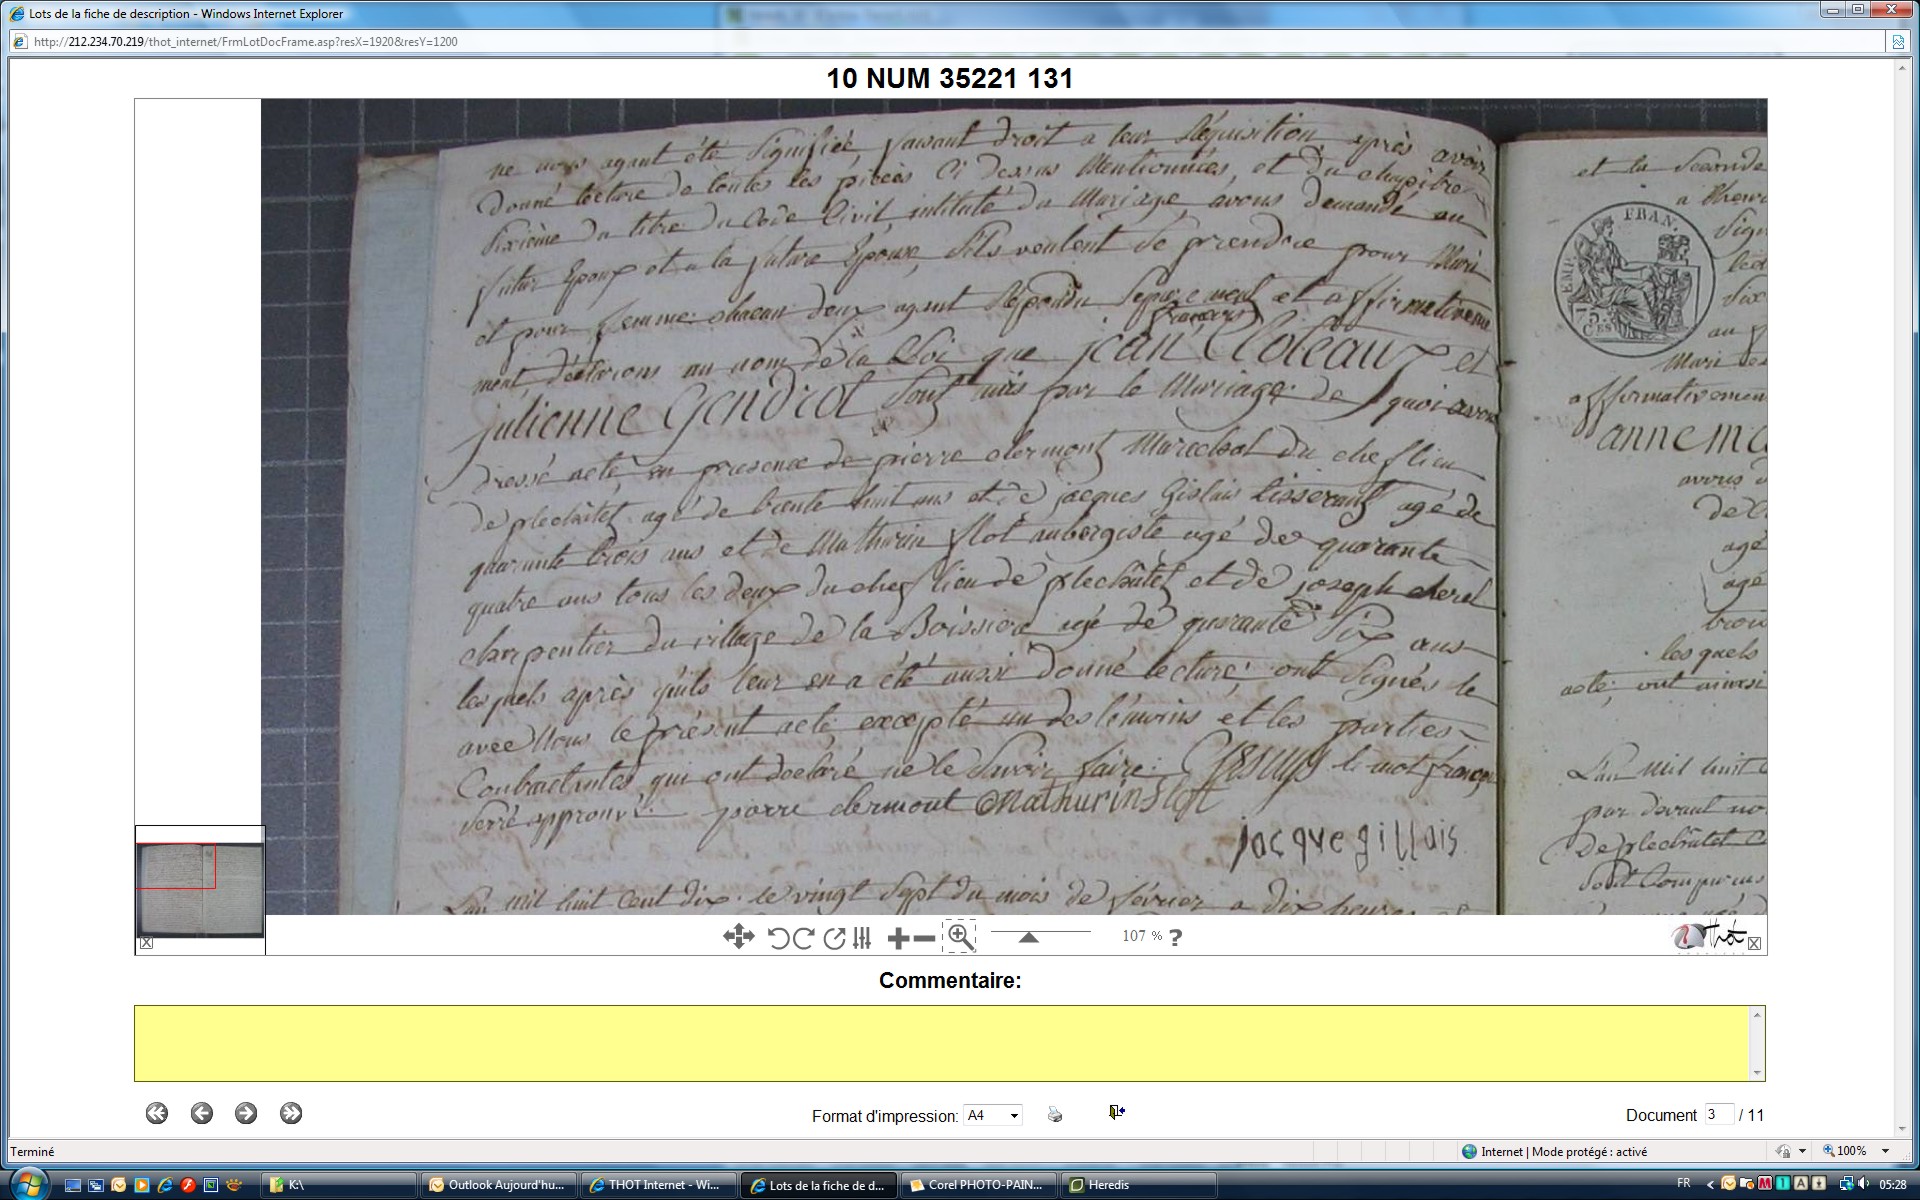 Lots de la fiche de description - Windows Internet Explorer
http://212.234.70.219/thot_internet/FrmLotDocFrame.asp?resX=1920&resY=1200
10 NUM 35221 131
ne nous ayant été Signifiée, faisant droit a leur Réquisition, après avoir
Donné lecture de toutes les pièces Ci dessus Mentionnées, et du chapitre
Sixième du titre du Code Civil intitulé du Mariage avons Demandé au
futur Epoux et a la future Epouse, S'ils veulent Se prendre pour Mari
et pour femme chacun deux ayant Répondu Séparement et affirmative
françois
ment, déclarons au nom de la Loi que jean Cloteaux et
julienne Gendrot Sont unis par le Mariage de quoi avons
dressé acte, en presence de pierre clermont Marechal du chef lieu
de plechâtel agé de trente huit ans et de jacques Gislais tisserant agé de
quarante trois ans et de Mathurin flot aubergiste agé de quarante
quatre ans tous les deux du chef lieu de plechâtel et de joseph cherel
charpentier du village de la Boissiere agé de quarante Six ans
les quels après qu'ils leur en a été aussi donné lecture, ont Signés le
avec Nous le présent acte, excepté un des témoins et les parties
Contractantes qui ont declaré ne le Savoir faire. le mot françois
Serré approuvé. pierre clermont Mathurin flot
jacque gillais
L'an mil huit Cent dix le vingt Sept du mois de fevrier a dix heures
et la Seconde
a
Sign
Six
au f
Mari et
affirmativemen
anne ma
avons d
de
agé
agé
trou
les quels
acte, ont ainsi
L'an mil huit C
par devant no
De plechâtel
Sont Comparus
EMP. FRAN.
75 CES
107 % ?
Thot
Commentaire:
Format d'impression: A4
Document 3 / 11
Terminé
Internet | Mode protégé : activé
100%
K:\
Outlook Aujourd'hu...
THOT Internet - Wi...
Lots de la fiche de d...
Corel PHOTO-PAIN...
Heredis
FR
05:28